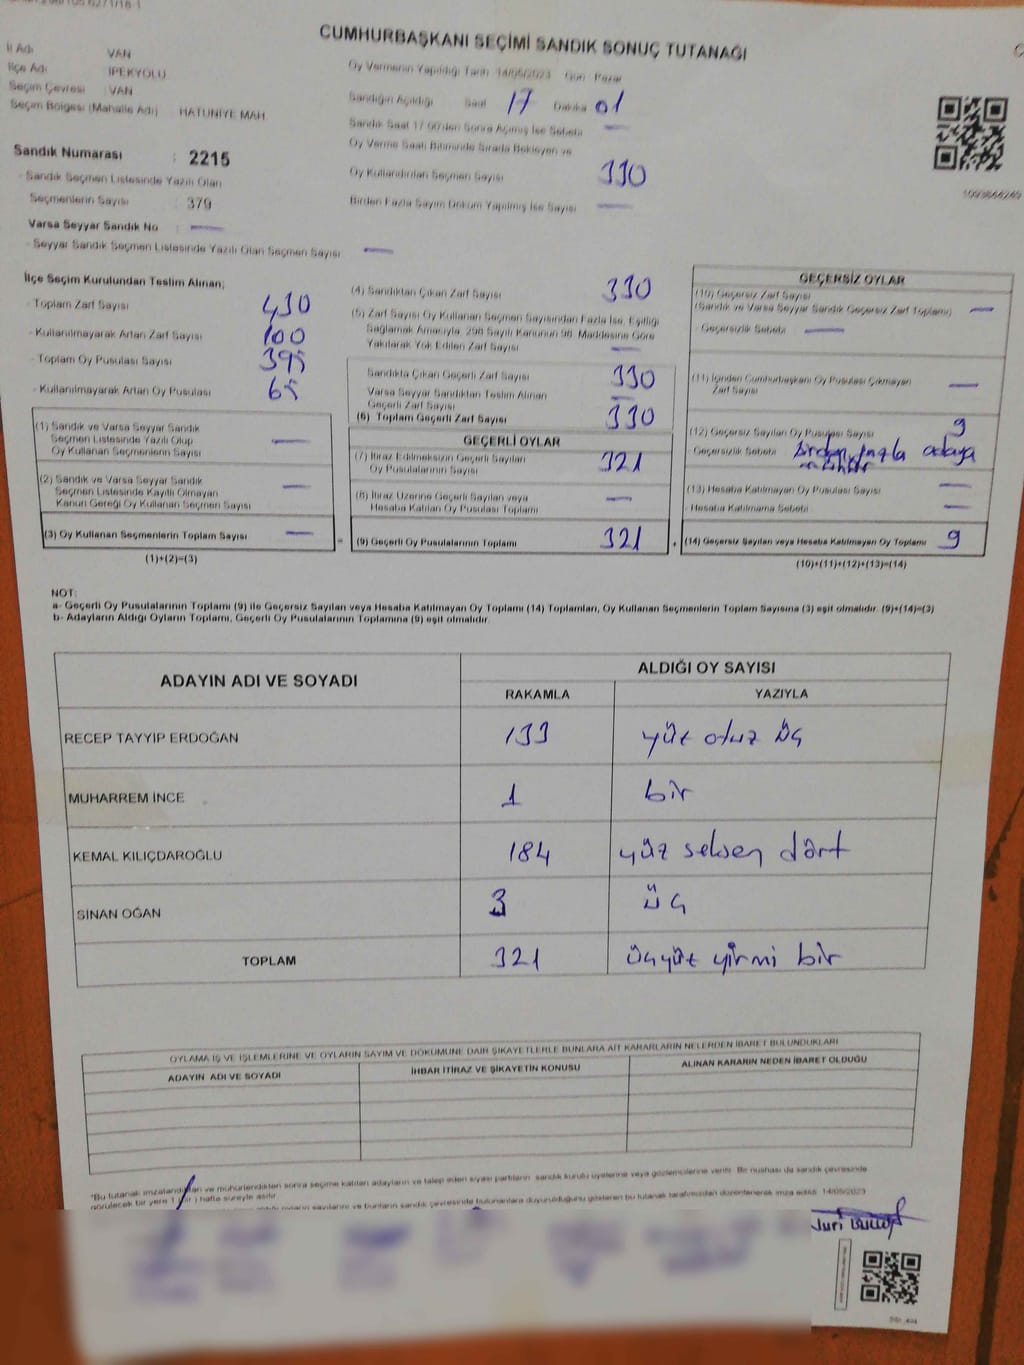 CUMHURBAŞKANI SEÇİMİ SANDIK SONUÇ TUTANAĞI
İl Adı VAN
İlçe Adı İPEKYOLU
Seçim Çevresi : VAN
Seçim Bölgesi (Mahalle Adı) HATUNİYE MAH
Sandık Numarası : 2215
- Sandık Seçmen Listesinde Yazılı Olan
Seçmenlerin Sayısı : 379
Varsa Seyyar Sandık No : —
- Seyyar Sandık Seçmen Listesinde Yazılı Olan Seçmen Sayısı —
Oy Vermenin Yapıldığı Tarih 14/05/2023 Gün Pazar
Sandığın Açıldığı Saat 17 Dakika 01
Sandık Saat 17:00'den Sonra Açılmış İse Sebebi —
Oy Verme Saati Bitiminde Sırada Bekleyen ve
Oy Kullandırılan Seçmen Sayısı 330
Birden Fazla Sayım Döküm Yapılmış İse Sayısı —
İlçe Seçim Kurulundan Teslim Alınan;
- Toplam Zarf Sayısı 430
- Kullanılmayarak Artan Zarf Sayısı 100
- Toplam Oy Pusulası Sayısı 395
- Kullanılmayarak Artan Oy Pusulası 65
(1) Sandık ve Varsa Seyyar Sandık
Seçmen Listesinde Yazılı Olup
Oy Kullanan Seçmenlerin Sayısı —
(2) Sandık ve Varsa Seyyar Sandık
Seçmen Listesinde Kayıtlı Olmayan
Kanun Gereği Oy Kullanan Seçmen Sayısı —
(3) Oy Kullanan Seçmenlerin Toplam Sayısı —
(1)+(2)=(3)
(4) Sandıktan Çıkan Zarf Sayısı 330
(5) Zarf Sayısı Oy Kullanan Seçmen Sayısından Fazla İse, Eşitliği
Sağlamak Amacıyla, 298 Sayılı Kanunun 98. Maddesine Göre
Yakılarak Yok Edilen Zarf Sayısı —
Sandıkta Çıkan Geçerli Zarf Sayısı 330
Varsa Seyyar Sandıktan Teslim Alınan
Geçerli Zarf Sayısı —
(6) Toplam Geçerli Zarf Sayısı 330
GEÇERLİ OYLAR
(7) İtiraz Edilmeksizin Geçerli Sayılan
Oy Pusulalarının Sayısı 321
(8) İtiraz Üzerine Geçerli Sayılan veya
Hesaba Katılan Oy Pusulası Toplamı —
(9) Geçerli Oy Pusulalarının Toplamı 321
GEÇERSİZ OYLAR
(10) Geçersiz Zarf Sayısı
(Sandık ve Varsa Seyyar Sandık Geçersiz Zarf Toplamı) —
- Geçersizlik Sebebi —
(11) İçinden Cumhurbaşkanı Oy Pusulası Çıkmayan
Zarf Sayısı —
(12) Geçersiz Sayılan Oy Pusulası Sayısı 9
- Geçersizlik Sebebi Birden fazla adaya
(13) Hesaba Katılmayan Oy Pusulası Sayısı —
- Hesaba Katılmama Sebebi —
(14) Geçersiz Sayılan veya Hesaba Katılmayan Oy Toplamı 9
(10)+(11)+(12)+(13)=(14)
NOT:
a- Geçerli Oy Pusulalarının Toplamı (9) ile Geçersiz Sayılan veya Hesaba Katılmayan Oy Toplamı (14) Toplamları, Oy Kullanan Seçmenlerin Toplam Sayısına (3) eşit olmalıdır. (9)+(14)=(3)
b- Adayların Aldığı Oyların Toplamı, Geçerli Oy Pusulalarının Toplamına (9) eşit olmalıdır.
ADAYIN ADI VE SOYADI ALDIĞI OY SAYISI
RAKAMLA YAZIYLA
RECEP TAYYİP ERDOĞAN 133 yüz otuz üç
MUHARREM İNCE 1 bir
KEMAL KILIÇDAROĞLU 184 yüz seksen dört
SİNAN OĞAN 3 üç
TOPLAM 321 üçyüz yirmi bir
OYLAMA İŞ VE İŞLEMLERİNE VE OYLARIN SAYIM VE DÖKÜMÜNE DAİR ŞİKAYETLERLE BUNLARA AİT KARARLARIN NELERDEN İBARET BULUNDUKLARI
ADAYIN ADI VE SOYADI İHBAR İTİRAZ VE ŞİKAYETİN KONUSU ALINAN KARARIN NEDEN İBARET OLDUĞU
"Bu tutanak imzalandıktan ve mühürlendikten sonra seçime katılan adayların ve talep eden siyasi partilerin sandık kurulu üyelerine veya gözlemcilerine verilir. Bir nüshası da sandık çevresinde
görülecek bir yere 1 (bir) hafta süreyle asılır.
sandık çevresinde bulunanlara duyurulduğunu gösteren bu tutanak tarafımızdan düzenlenerek imza edildi. 14/05/2023